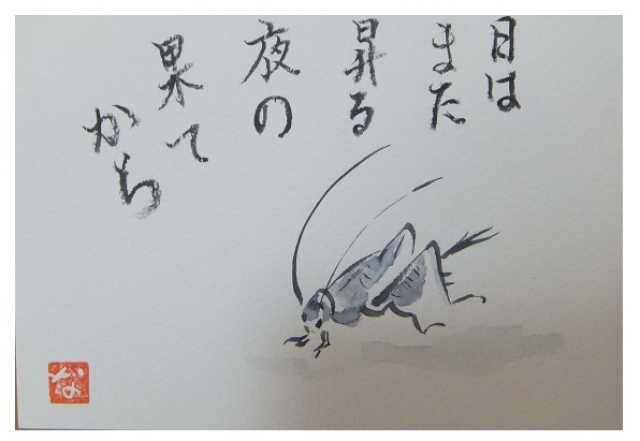 日は
また
昇る
夜の
果て
から